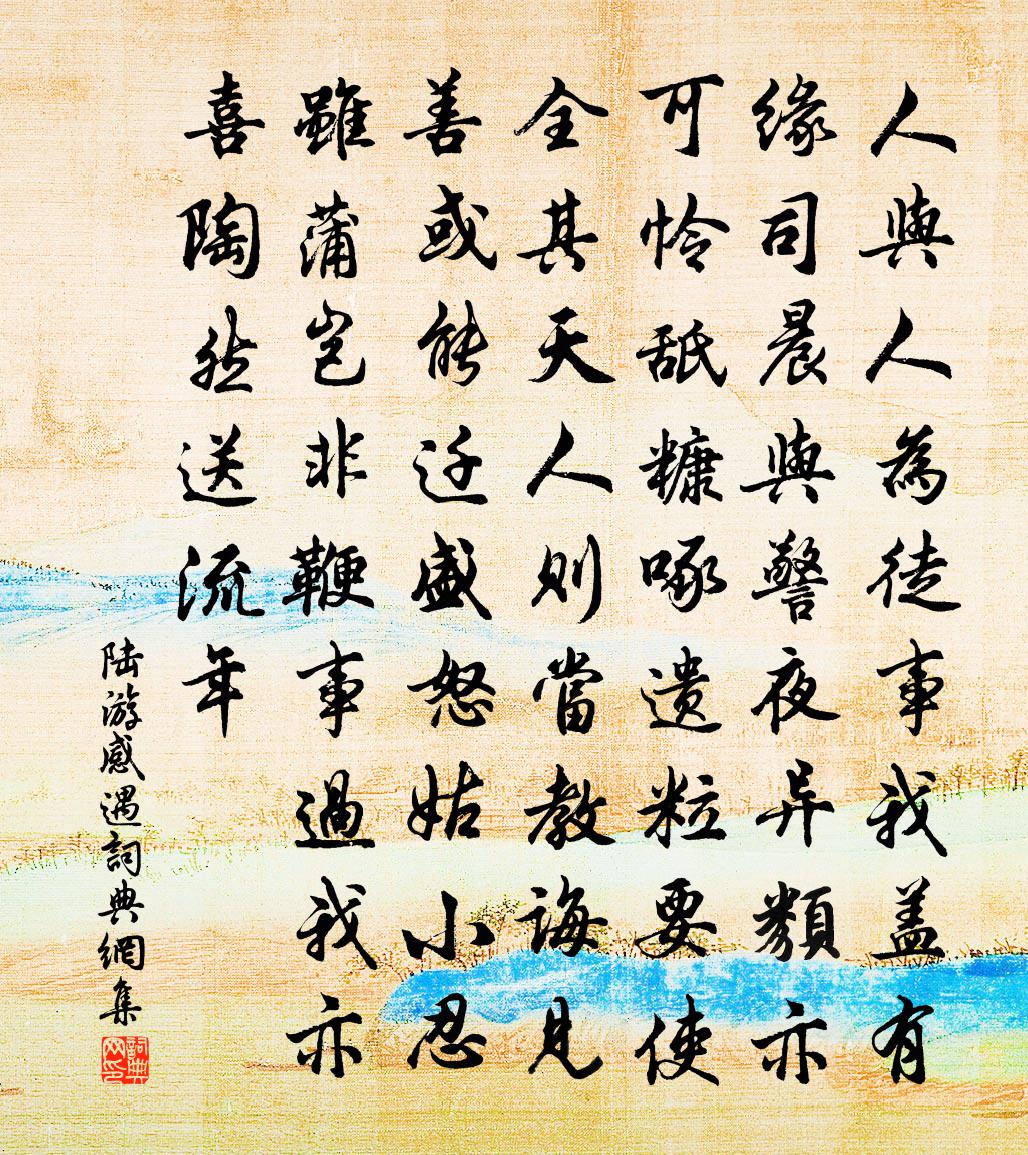 人與人為徒事我盖有
缘司晨與警夜异類亦
可怜舐糠啄遗粒要使
全其天人则當教誨见
善或能迁盛怒姑小忍
雖蒲岂非鞭事過我亦
喜陶然送流年
陆游感遇詞典網集
詞典网印